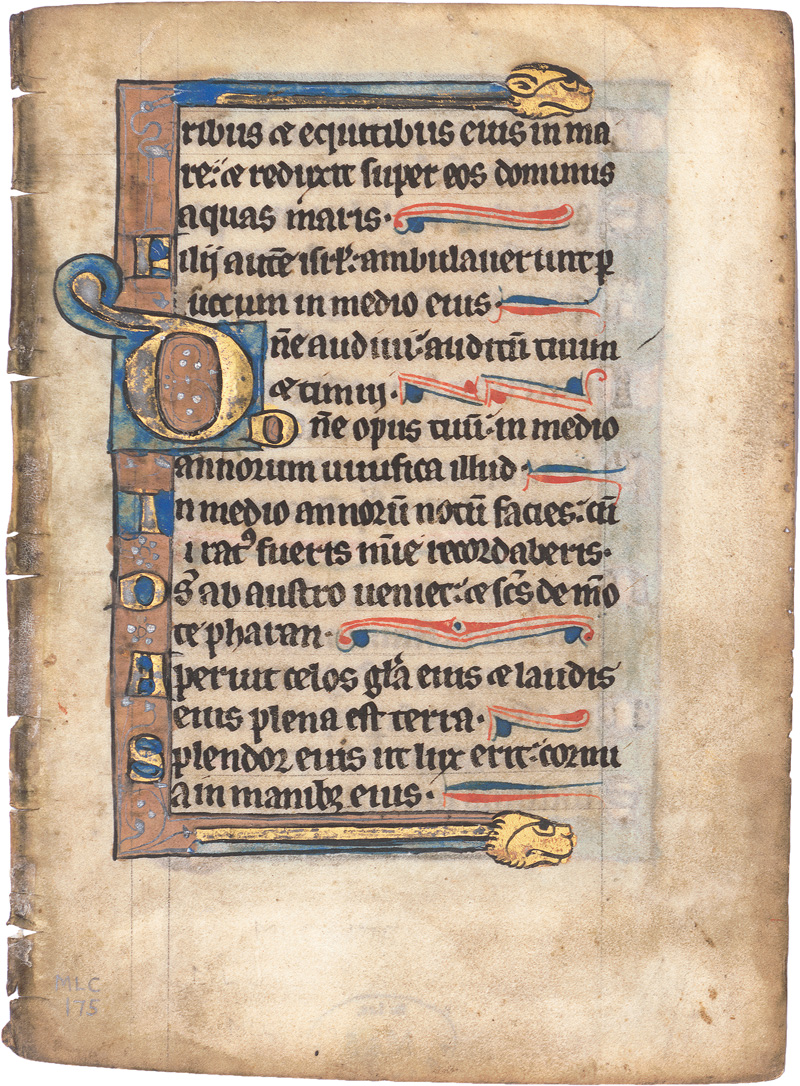 ribus & equitibus eius in ma
re: & reduxit super eos dominus
aquas maris·
Filij autē isrł: ambulauerunt ꝑ
uttum in medio eius·
Dñe audiui: auditū tuum
& timui·
Dñe opus tuū: in medio
annorum uiuifica illud·
In medio annorū notū facies: cū
iratꝰ fueris mĩe recordaberis·
Ds̃ ab austro ueniet: & scs̃ de mõ
te pharan·
Aperuit celos gła eius & laudis
eius plena est terra·
Splendor eius ut lux erit: cornu
a in manibꝫ eius·
MI.C.
175